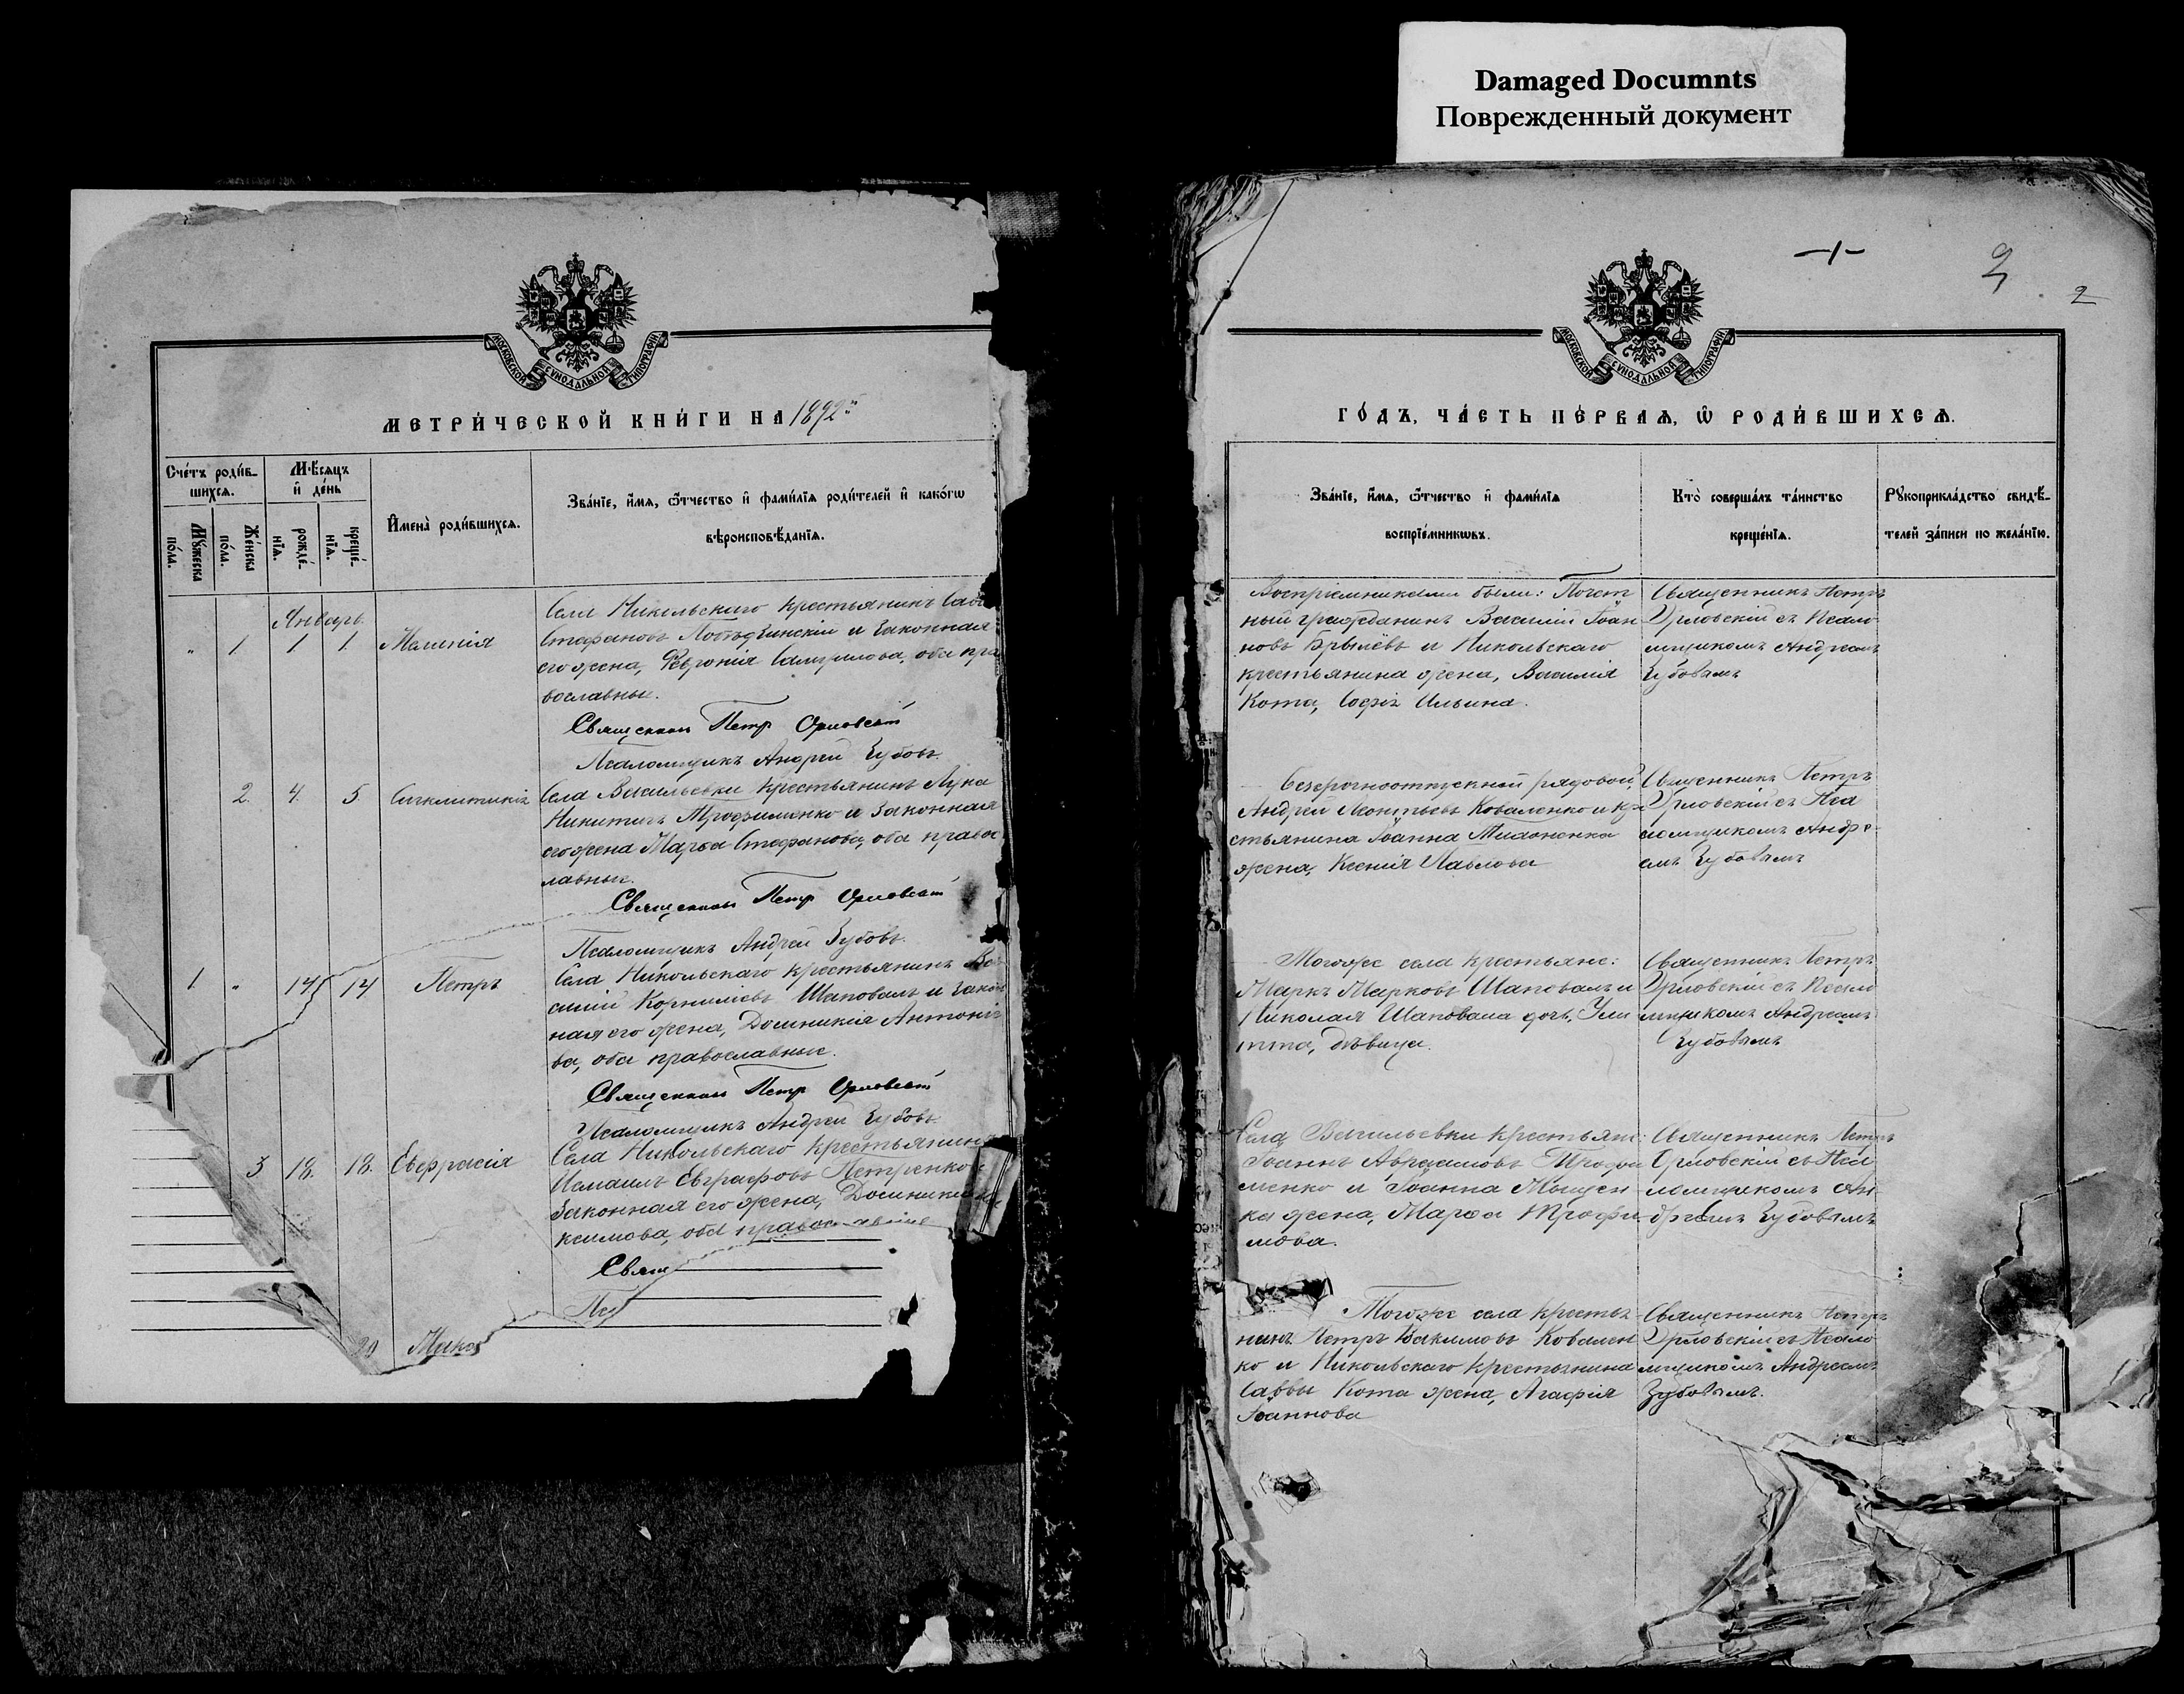 Damaged Documnts
Поврежденный документ
МОСКОВСКОЙ СѴНОДАЛЬНОЙ ТИПОГРАФІИ
МЕТРИ́ЧЕСКОЙ КНИ́ГИ НА 1892
Сче́тъ роди́в-
шихсѧ.
Мѣ́сѧцъ
и҆ де́нь
Мꙋ́жеска
по́ла.
Же́нска
по́ла.
рожде́-
нїѧ.
креще́-
нїѧ.
И҆мена̀ роди́вшихсѧ.
Зва́нїе, и҆́мѧ, ѻ҆́тчество и҆ фами́лїѧ роди́телей и҆ како́гѡ
вѣроисповѣ́данїѧ.
Январь
" 1 1 1 Меланія
Села Никольскаго крестьянинъ
Стефановъ и законная
его жена, Феѵронія оба пра
вославные.
Священник Петр Орловскій
Псаломщикъ Андрей Зубовъ.
2. 4. 5. Сигклитикія
Села Васильевки крестьянинъ Лука
Никитинъ Трофименко и законная
его жена Марѳа Стефанова, оба правос
лавные.
Священник Петр Орловскій
Псаломщикъ Андрей Зубовъ.
1. " 14 14 Петръ
Села Никольскаго крестьянинъ Ва
силій Корниліевъ Шаповалъ и закон
ная его жена, Домникія Антоніе
ва, оба православные.
Священник Петр Орловскій
Псаломщикъ Андрей Зубовъ
3 18. 18. Евфрасія
Села Никольскаго крестьянинъ
Исмаилъ Евграфовъ Петренко
законная его жена, Домникія
ксимова, оба православные
Свящ
Пс
20
ГО́ДЪ, ЧА́СТЬ ПЕ́РВАѦ, Ѡ҆ РОДИ́ВШИХСѦ.
МОСКОВСКОЙ СѴНОДАЛЬНОЙ ТИПОГРАФІИ
2
Зва́нїе, и҆́мѧ, ѻ҆́тчество и҆ фами́лїѧ
воспрїе́мникѡвъ.
Кто̀ соверша́лъ та́инство
креще́нїѧ.
Рꙋкоприкла́дство свидѣ́-
телей за́писи по жела́нїю.
Воспріемниками были: Почет
ный гражданинъ Василій Іоан
новъ Брылевъ и Никольскаго
крестьянина жена, Василія
Кота, Софія Ильина.
Священникъ Петръ
Орловскій съ Псало
мщикомъ Андреемъ
Зубовымъ
Безсрочноотпускной рядовой,
Андрей Леонтьевъ Коваленко и кре
стьянина Іоанна
жена, Ксенія Павлова
Священникъ Петръ
Орловскій съ Пса
ломщикомъ Андре-
емъ Зубовымъ
Тогоже села крестьяне:
Маркъ Марковъ Шаповалъ и
Николая Шаповала дочь, Ули
тта, дѣвица.
Священникъ Петръ
Орловскій съ Псало
мщикомъ Андреемъ
Зубовымъ
Села Васильевки крестьян:
Іоаннъ Авраамовъ Трофи
менко и Іоанна Мощен
ка жена, Марѳа Трофи
мова.
Священникъ Петръ
Орловскій съ Пса
ломщикомъ Ан
дреемъ Зубовымъ
Тогоже села крестья
нинъ Петръ Іоакимовъ Ковален
ко и Никольскаго крестьянина
Саввы Кота жена, Агафія
Іоаннова
Священникъ Петръ
Орловскій съ Псало
мщикомъ Андреемъ
Зубовымъ.